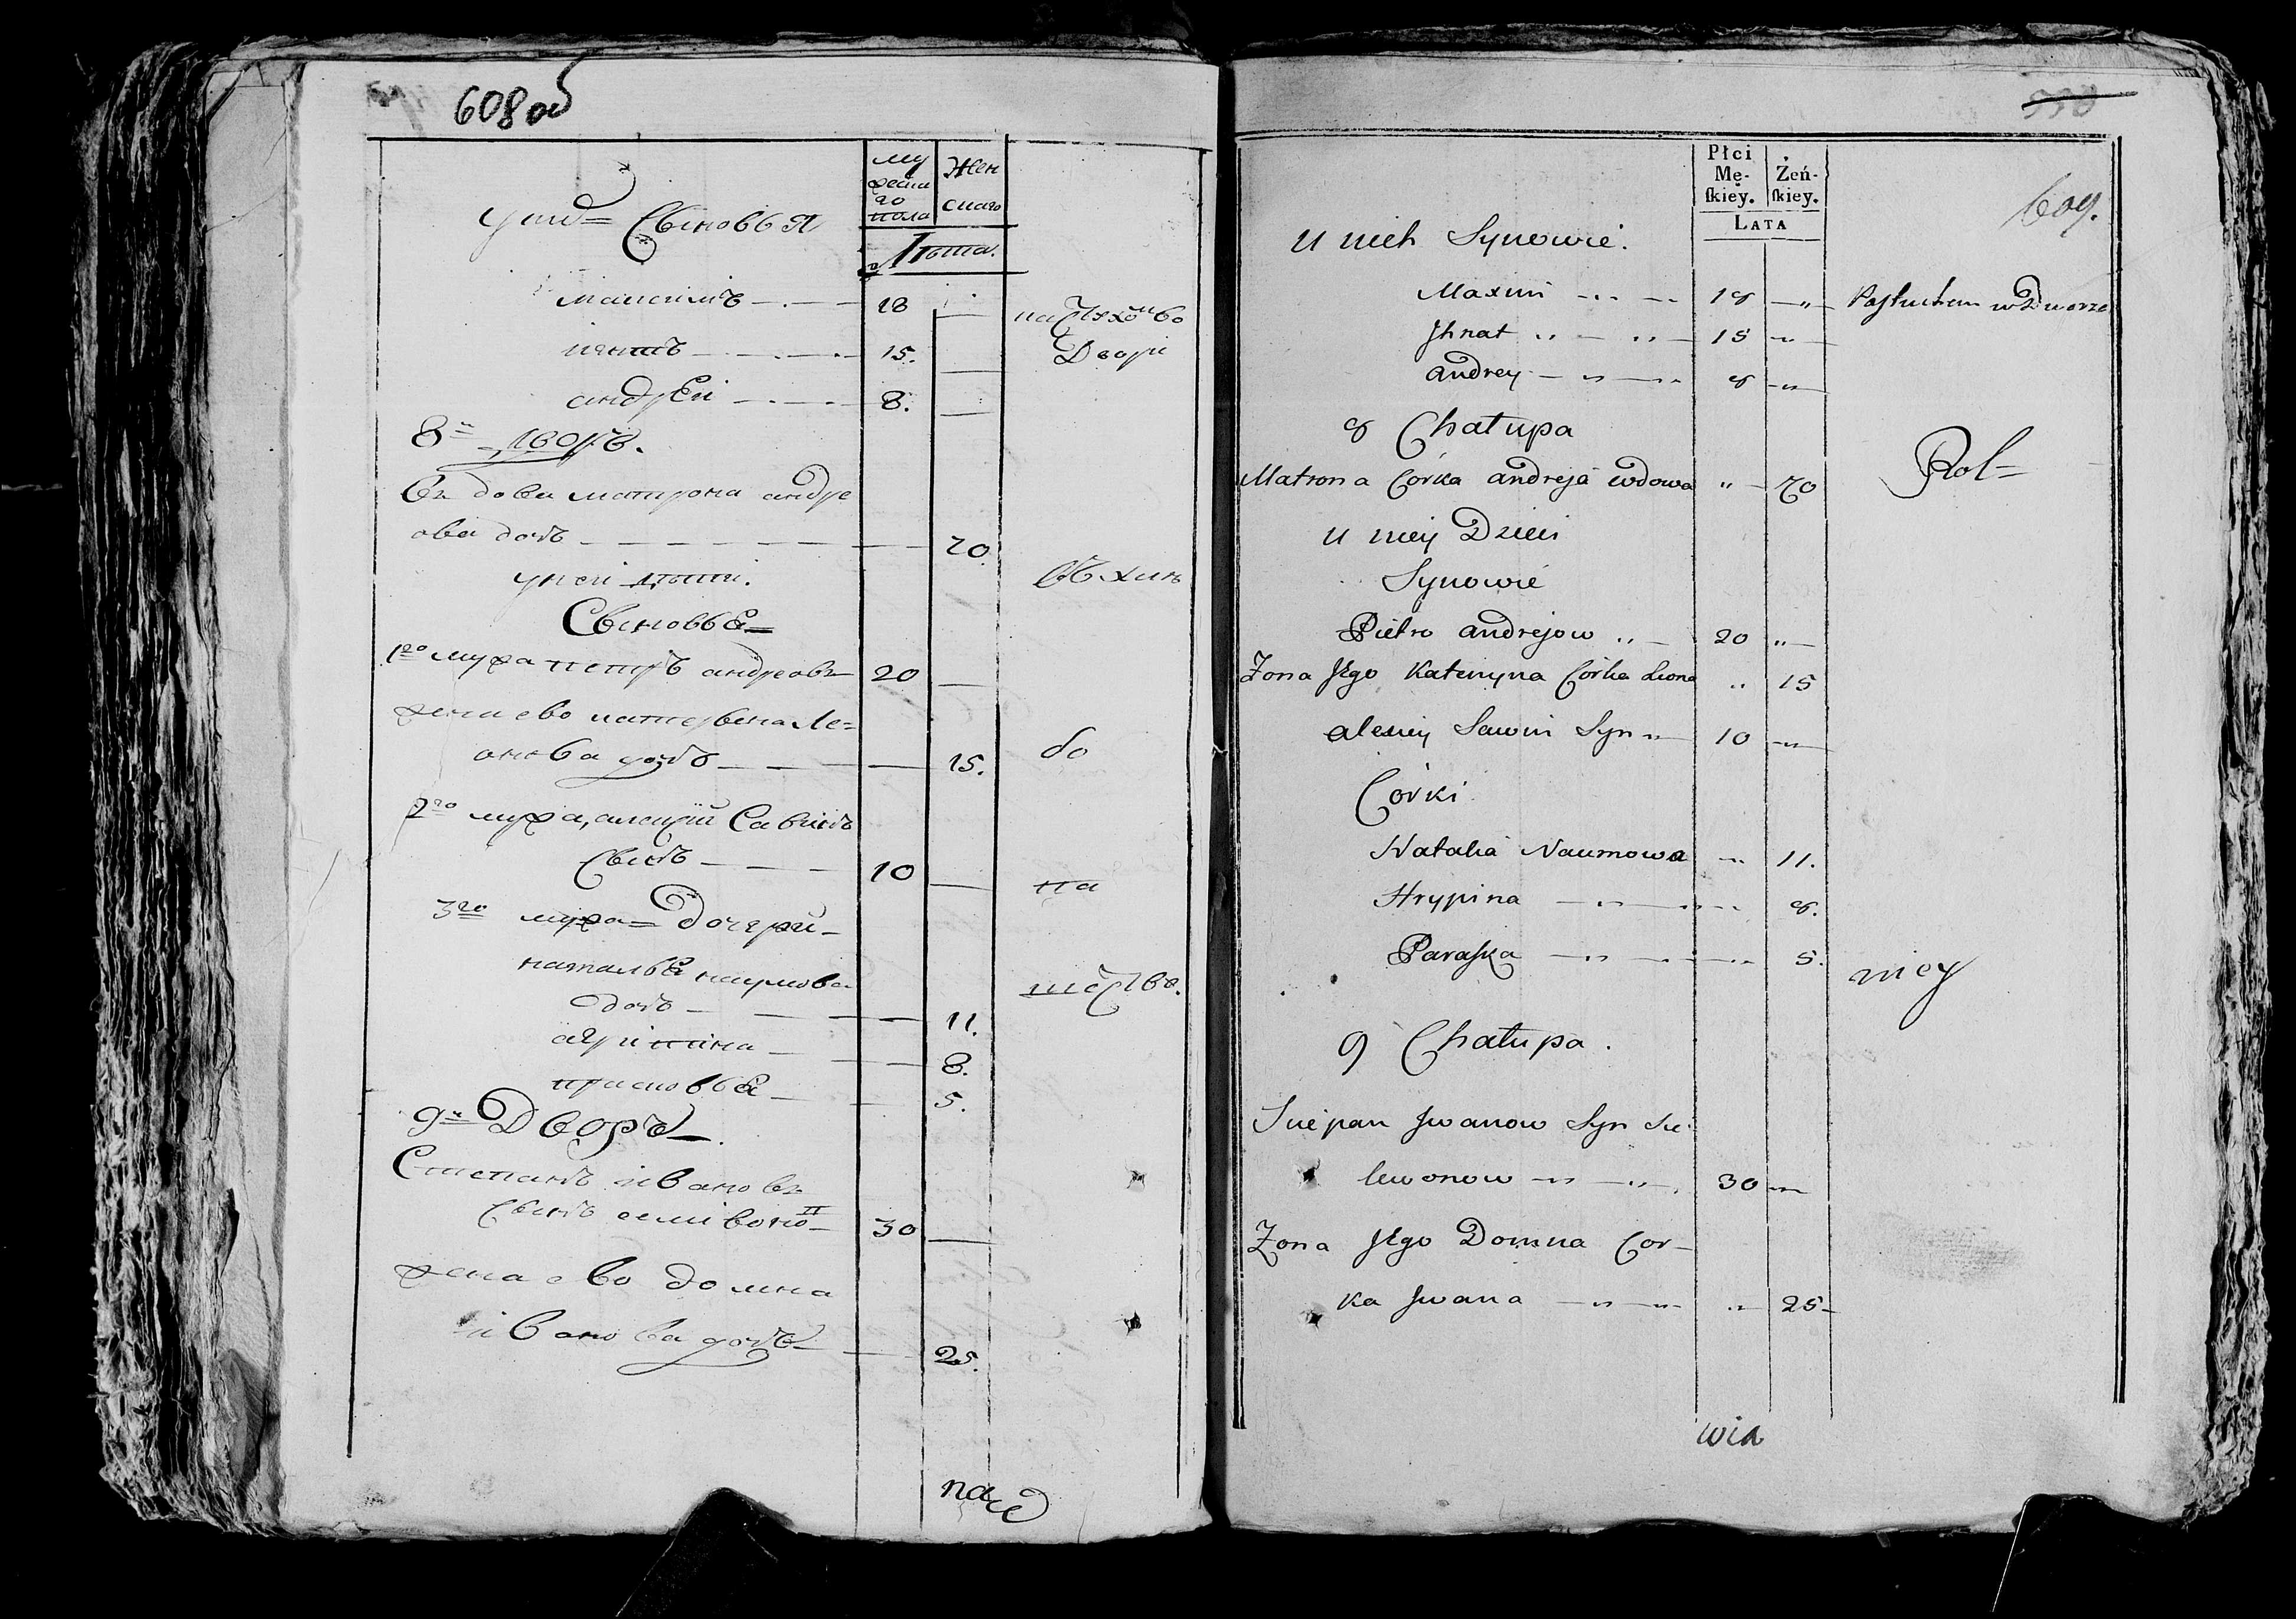 608 об
му
жеска
го
пола
Жен
скаго
Лѣта.
у них Сыновья
максимъ 18
пастухомъ во
Дворѣ
игнатъ 15.
андрей 8.
8й дворъ.
Вдова матрона андре
ова дочь 70.
у ней дѣти.
Сыновья
1го мужа петръ андреовъ 20
жена ево катерына Ле=
онова дочь 15.
до
2го мужа, алексѣй Савинъ
Сынъ 10
па
3го мужа Дочери
наталья наумова
дочь 11.
агрипина 8.
прасковья 5.
9й Дворъ
Степанъ ивановъ
Сынъ селивоно 30
жена ево домна
иванова дочь 25.
над
Płci
Mę-
ſkiey.
Żeń-
ſkiey.
LATA
609.
U nich Synowie.
Maxim 18 Paſtuchem w Dworze
Jhnat 15
Andrey 8
8 Chałupa
Matrona Córka Andreja wdowa 70 Rol=
U niey Dzieci
Synowie
Pietro Andrejow 20
Żona Jego Kateryna Córka Leona 15
Alexiey Sawin Syn 10
Córki
Natalia Naumowa 11.
Hrypina 8.
Paraſka 5.
niey
9 Chałupa.
Sciepan Jwanow Syn Sie
lewonow 30
Żona Jego Domna Cor-
ka Jwana 25